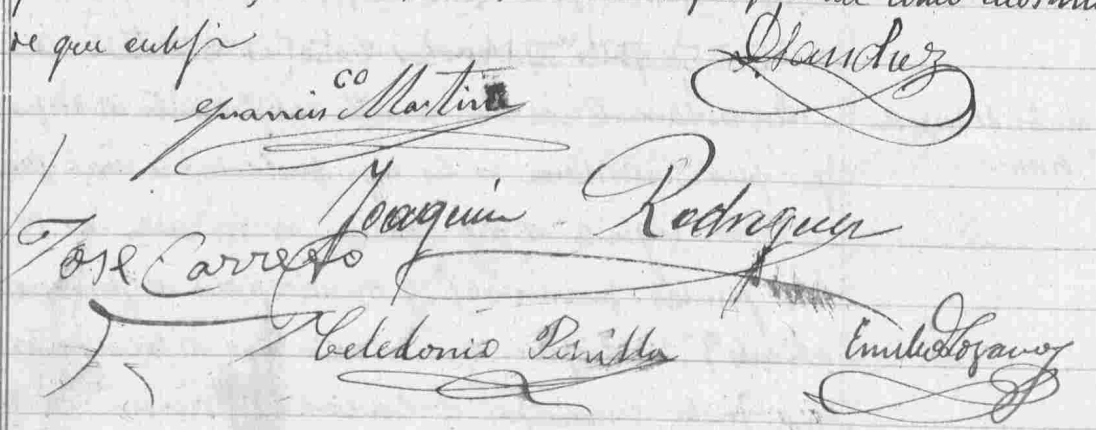 como
que
D Sanchez
Francis.co Martin
Joaquin Rodriguez
Jose Carreto
Celedonio Pinilla
Emilio Lozano